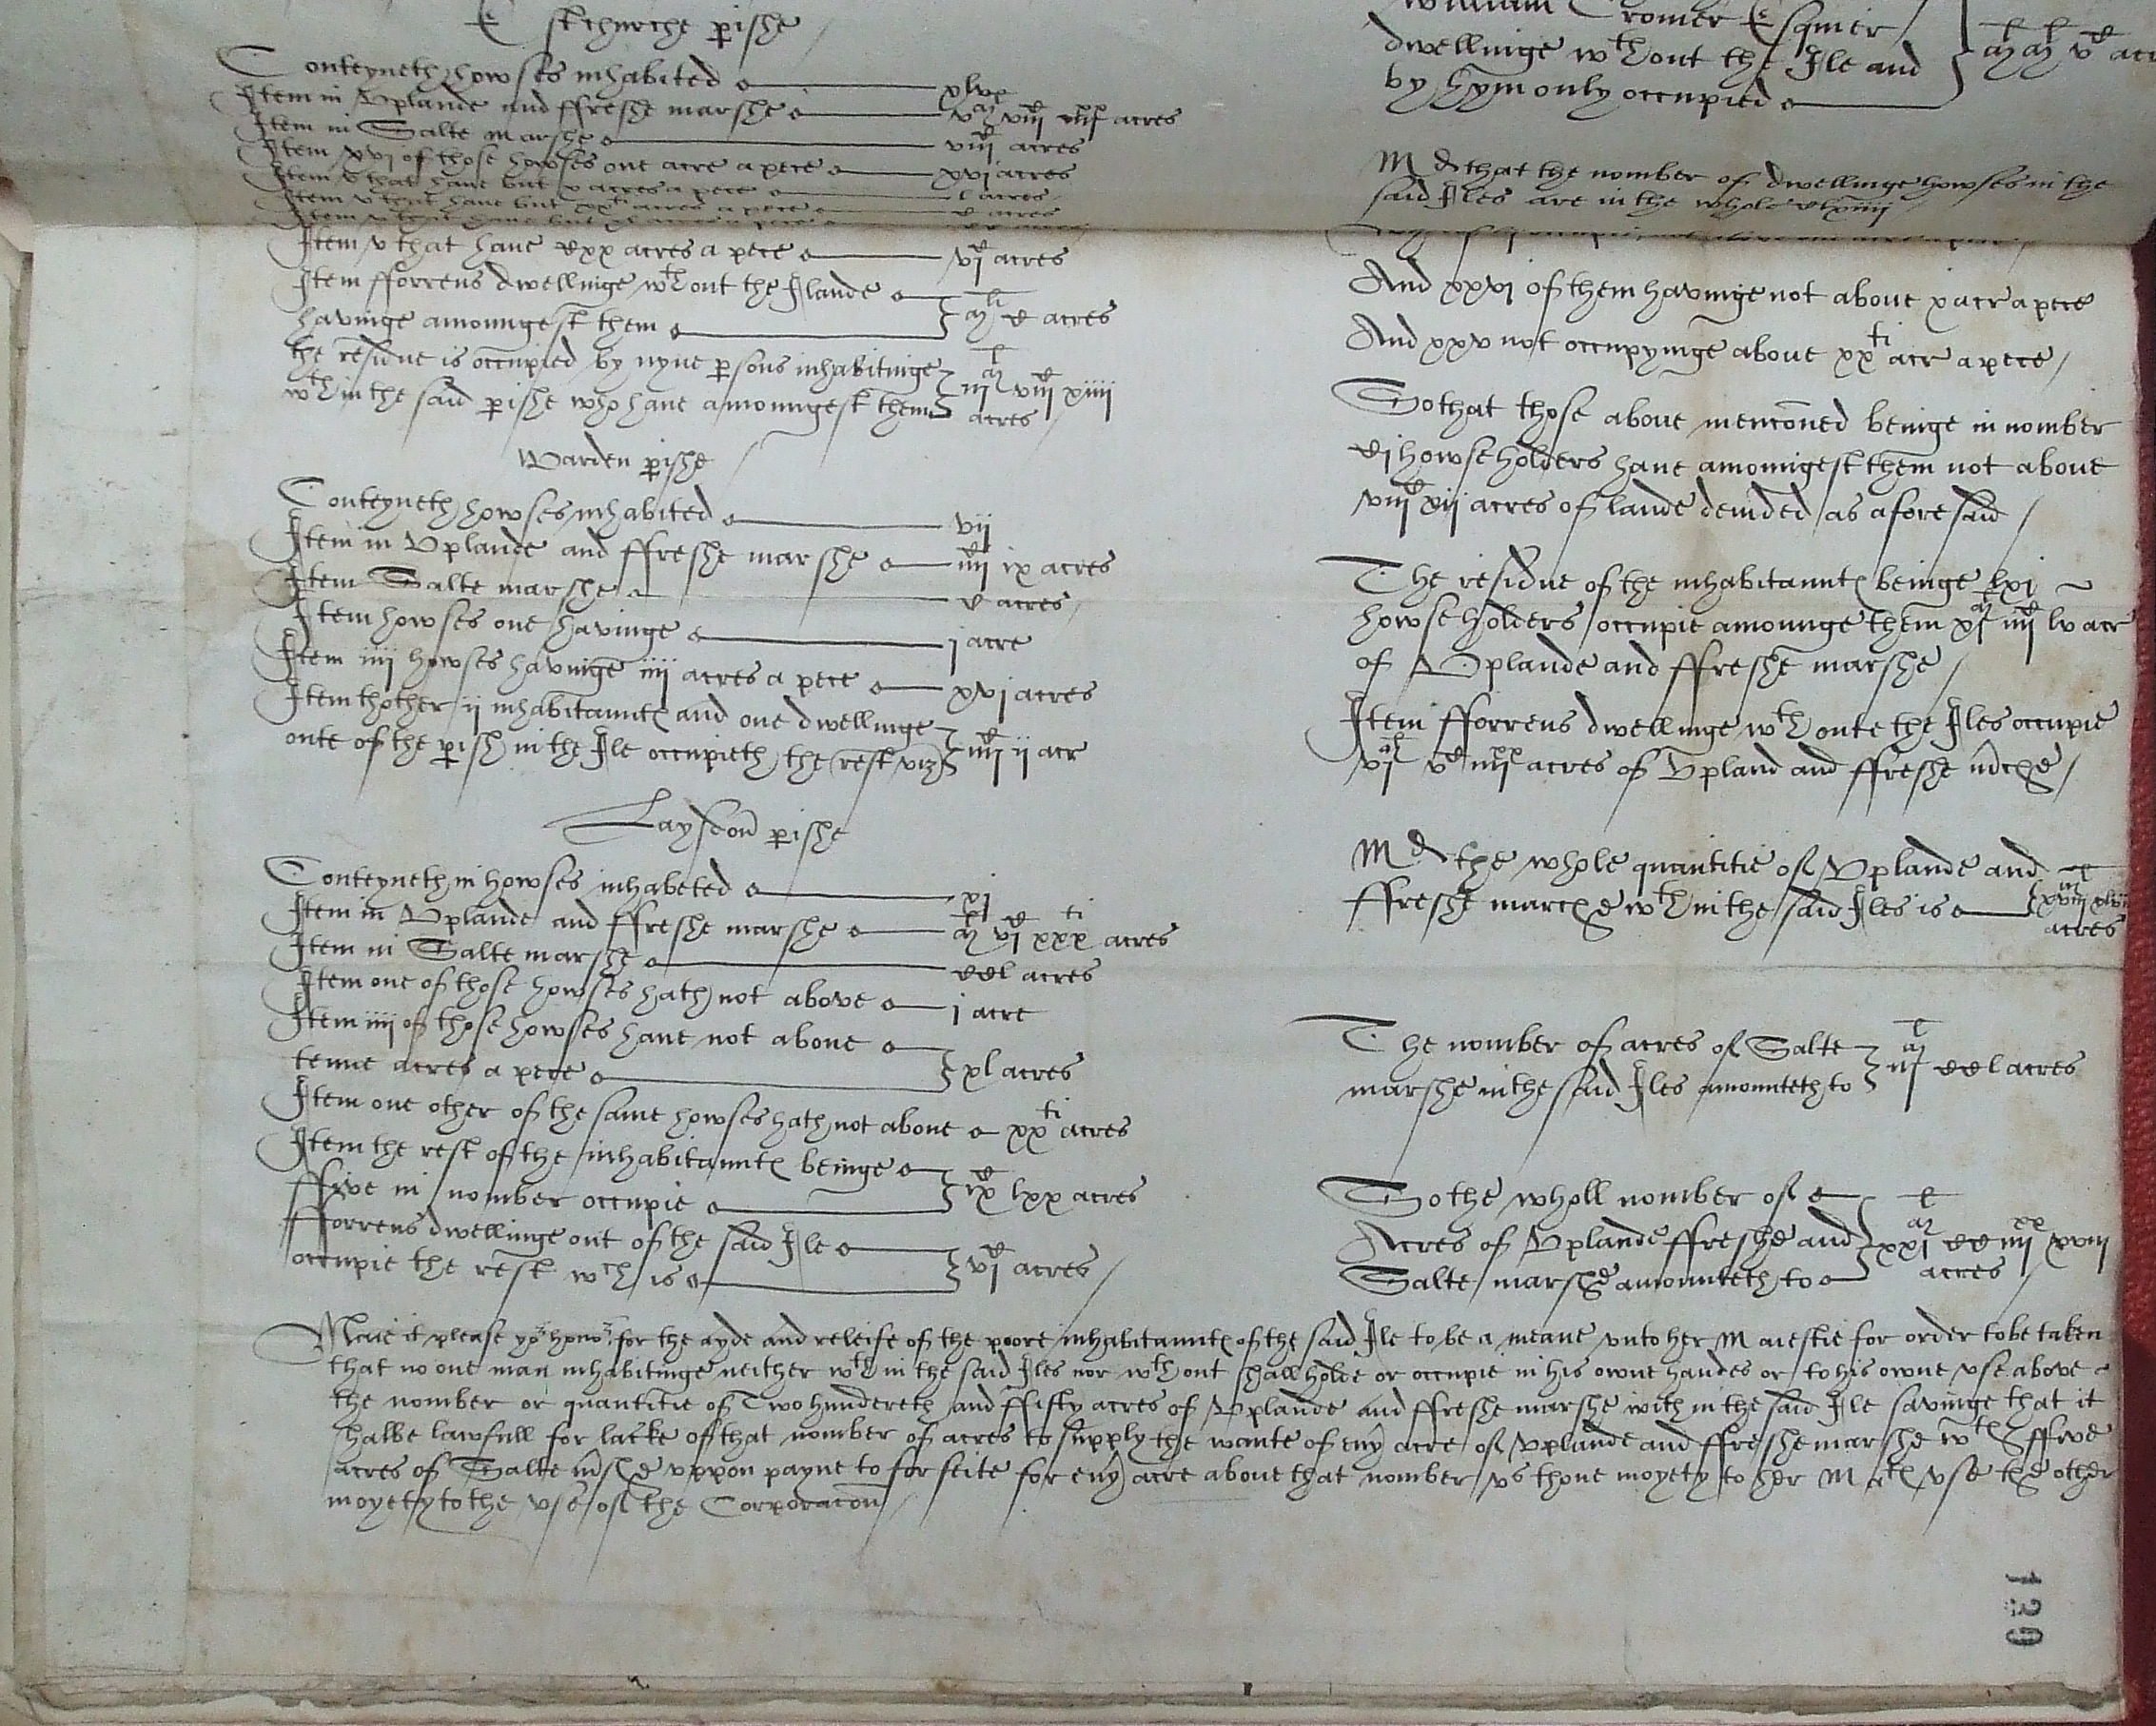 Estchurche p̱ishe
Conteyneth howses inhabited xlvx
Item in Uplande and ffreshe marshe acres
Item in Salte marshe viijc acres
Item xvi of those howses one acre a pece xvj acres
Item v that haue but x acres a pece l acres
Item v that haue but xxti acres a pece c acres
Item v that haue but acres a pece
Item v that haue cxx acres a pece vjc acres
Item fforrens dwellinge wthout the Ilande
havinge amoungest them mli c acres
the residue is occupied by nyne p̱sons inhabitinge
wthin the said p̱ishe who haue amoungest them iijml viijc xiiij
acres
Warden p̱ishe
Conteyneth howses inhabited vij
Item in Uplande and ffreshe marshe iiijc ix acres
Item Salte marshe c acres
Item howses one havinge j acre
Item iiij howses havinge iiij acres a pece xvj acres
Item thother ij inhabitauntes and one dwellinge
oute of the p̱ish in the Ile occupieth the rest viz iiijc ij acr
Laysdon p̱ishe
Conteyneth in howses inhabeted xj
Item in Uplande and ffreshe marshe ml vjc xxxti acres
Item in Salte marshe ccl acres
Item one of those howses hath not above j acre
Item iiij of those howses haue not aboue
tenne acres a pece xl acres
Item one other of the same howses hath not aboue xxti acres
Item the rest of the inhabitauntes beinge
ffive in nomber occupie ixc lxx acres
fforrens dwellinge out of the said Ile
occupie the rest wch is vjc acres
William Cromer Esquier
dwellinge wthout the Ile and
by hym only occupied ml ml vc acr
Md that the nomber of dwellinge howses in the
said Iles are in the whole clxiiij
And xxvj of them havinge not aboue x acr a pece
And xxv not occupyinge aboue xxti acr a pece
So that those aboue mencōned beinge in nomber
cij howseholders haue amoungest them not aboue
viijc xij acres of lande deuided as aforesaid
The residue of the inhabitauntes beinge lxj
howseholders occupie amounge them xjml iiijc lv acr
of Uplande and ffreshe marshe
Item fforrens dwellinge wthoute the Iles occupie
vjml vc iiijxx acres of Upland and ffreshe mrche
Md the whole quantitie of Uplande and
ffreshe marche wthin the said Iles is xviijml xlviij
acres
The nomber of acres of Salte
marshe in the said Iles amounteth to iijml ccl acres
So the wholl nomber of
Acres of Uplande ffreshe and
Salte marshe amounteth to xxjml cc iiijxx xviij
acres
Maie it please yor honor for the ayde and releife of the poore inhabitauntes of the said Ile to be a meane unto her Maiestie for order to be taken
that no one man inhabitinge neither wthin the said Iles nor wthout shall holde or occupie in his owne handes or to his owne use above
the nomber or quantitie of Two hundereth and ffifty acres of Uplande and ffreshe marshe within the said Ile savinge that it
shalbe lawfull for lacke of that nomber of acres to supply the wante of eny acre of Uplande and ffreshe marshe wth ffive
acres of Salte mrshe uppon payne to forfeite for eny acre aboue that nomber vs thone moyety to her Mates use the other
moyety to the use of the Corporacōn
130